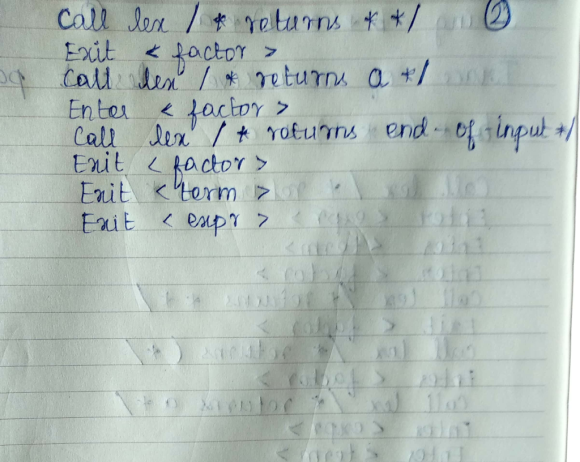 ②
Call lex / * returns * */
Exit < factor >
Call lex / * returns a */
Enter < factor >
Call lex / * returns end-of-input */
Exit < factor >
Exit < term >
Exit < expr >